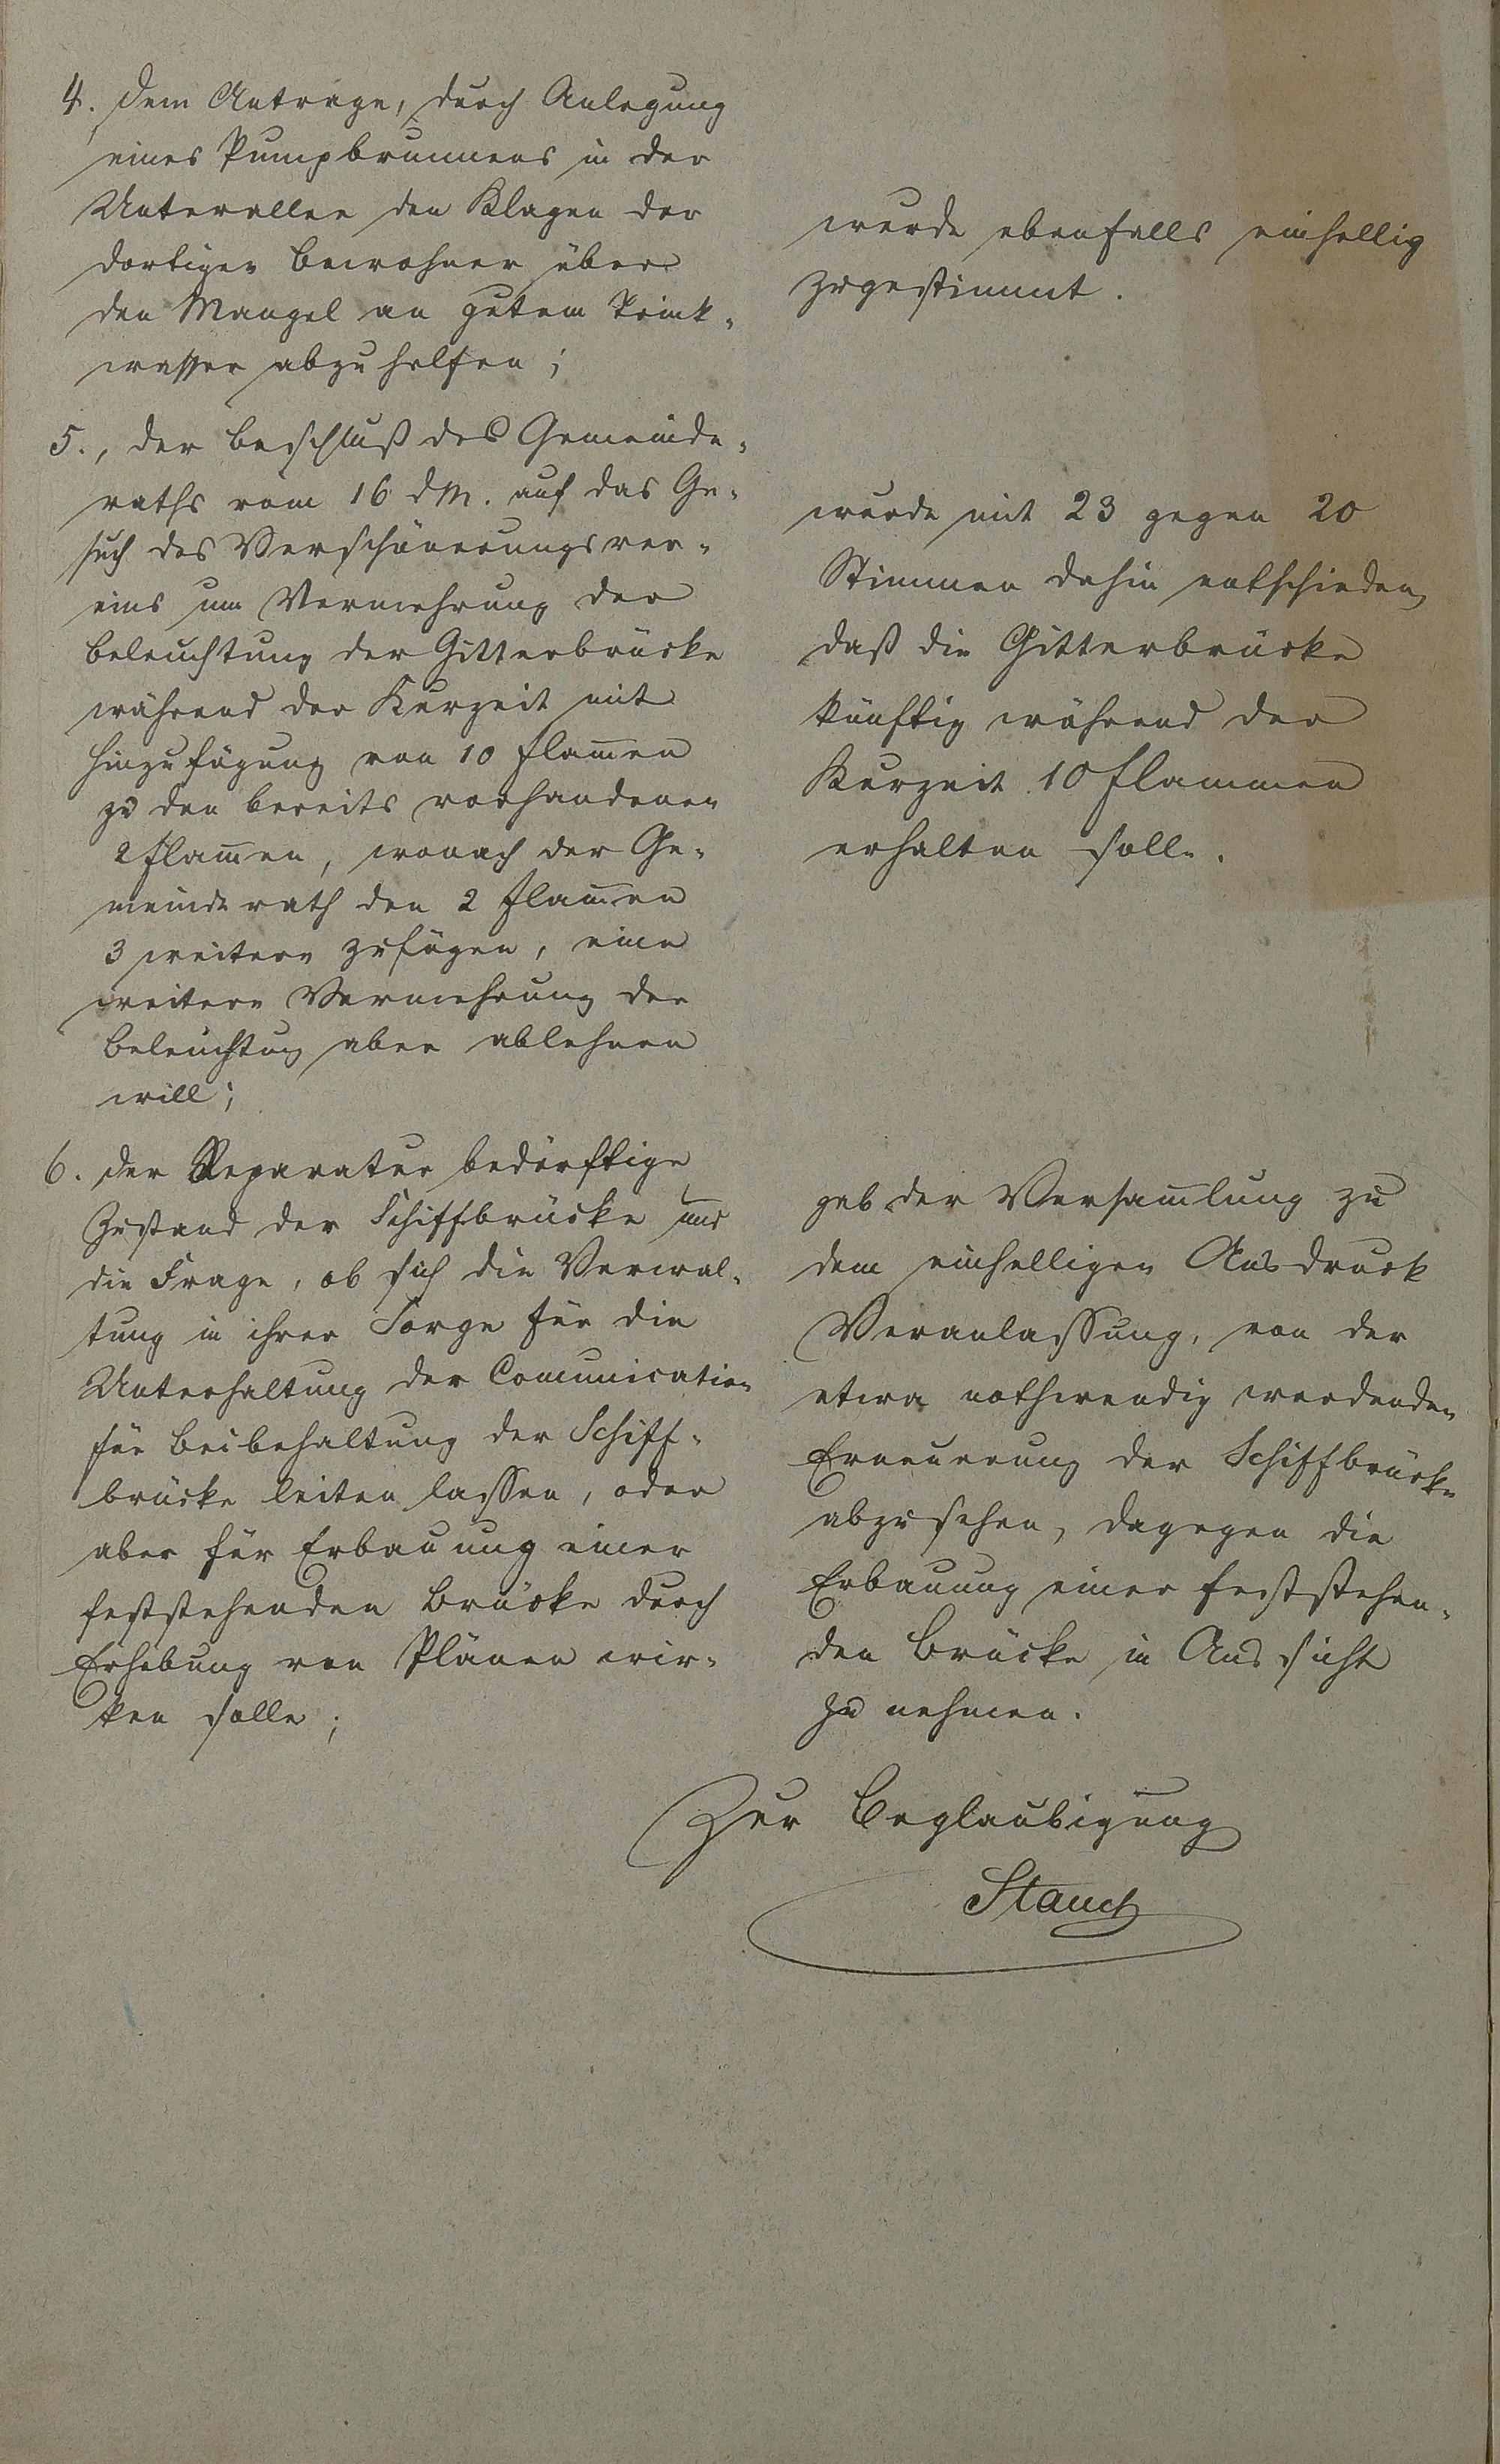 4. dem Antrage, durch Anlegung
eines Pumpbrunnens in der
Unterallee den Klagen der
dortigen Bewohner über
den Mangel an gutem Trink-
wasser abzuhelfen;
wurde ebenfalls einhellig
zugestimmt.
5., der Beschluß des Gemeinde-
raths vom 16 d M. auf das Ge-
such des Verschönerungsver-
eins um Vermehrung der
Beleuchtung der Gitterbrücke
während der Kurzeit mit
Hinzufügung von 10 Flam̄en
zu den bereits vorhandenen
2 Flam̄en, wonach der Ge-
meinderath den 2 Flam̄en
3 weitere zufügen, eine
weitere Vermehrung der
Beleuchtung aber ablehnen
will;
wurde mit 23 gegen 20
Stimmen dahin entschieden,
daß die Gitterbrücke
künftig während der
Kurzeit 10 Flammen
erhalten solle.
6. der Reparatur bedürftige
Zustand der Schiffbrücke und
die Frage, ob sich die Verwal-
tung in ihrer Sorge für die
Unterhaltung der Com̄unication
für Beibehaltung der Schiff-
brücke leiten lassen, oder
aber für Erbauung einer
feststehenden Brücke durch
Erhebung von Plänen wir-
ken solle;
gab der Versam̄lung zu
dem einhelligen Ausdruck
Veranlassung, von der
etwa nothwendig werdenden
Erneuerung der Schiffbrücke
abzusehen, dagegen die
Erbauung einer feststehen-
den Brücke in Aussicht
zu nehmen.
Zur Beglaubigung
Stauch